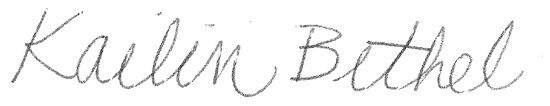 Kailin Bethel